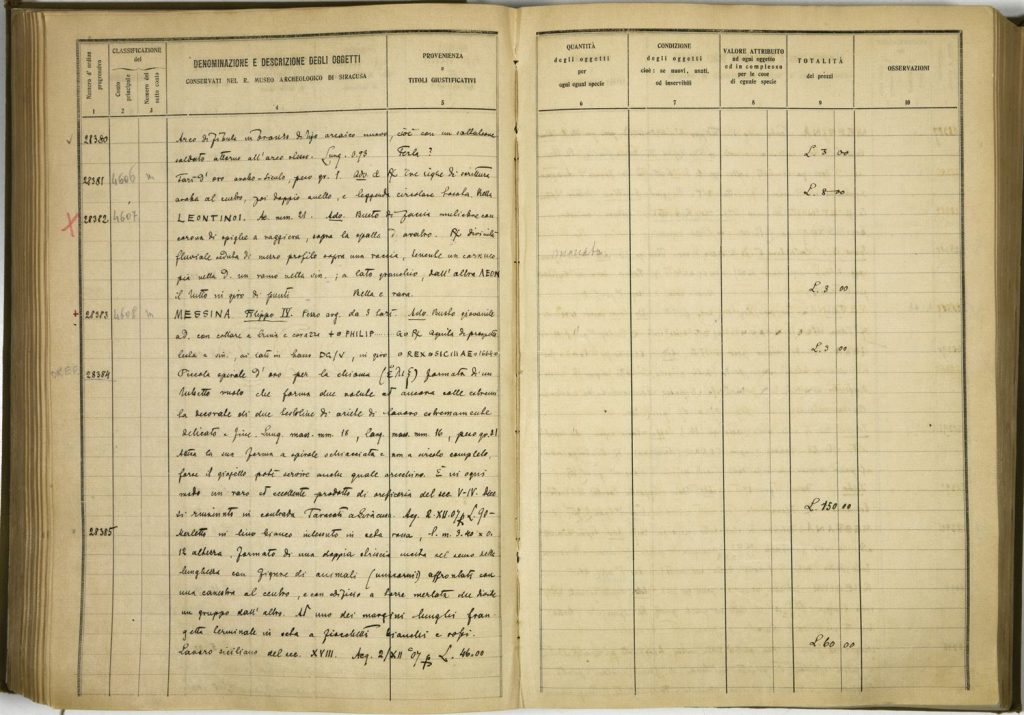 Numero d'ordine progressivo
CLASSIFICAZIONE del
Conto principale
Numero del sotto conto
DENOMINAZIONE E DESCRIZIONE DEGLI OGGETTI
CONSERVATI NEL R. MUSEO ARCHEOLOGICO DI SIRACUSA
PROVENIENZA
e
TITOLI GIUSTIFICATIVI
1 2 3 4 5
28380 Arco di fibula in bronzo di tipo arcaico nuovo, cioè con un
saldato attorno all'arco stesso. Lung. 0.93 Ferla ?
28381 4606 m Tarì d'oro arabo-siculo, peso gr. 1. Ado. e R/ Tre righe di scrittura
araba al centro, poi doppio anello, e leggenda circolare Bella
28382 4607 LEONTINOI. Ae. mm. 21. Ado. Busto di faccia muliebre con
corona di spighe a raggiera, sopra la spalla d. aratro. R/ Divinità
fluviale seduta di mezzo profilo sopra una roccia, tenente un cornuco
pia nella d. un ramo nella sin.; a lato granchio, dall'altro ΛΕΟΝ
il tutto in giro di punti Bella e rara.
28383 4608 m MESSINA. Filippo IV. Pezzo arg. da 3 tarì. Ado. Busto giovanile
a d. con collare a e corazza + o PHILIP R/ Aquila di prospetto
testa a sin., ai lati in basso DG/V, in giro o REX o SICILIAE
OREF. 28384 Piccola spirale d'oro per la chioma (ἕλιξ) formata di un
tubetto vuoto che forma due volute ed ancora colle estremi
tà decorate di due testoline di ariete di lavoro estremamente
delicato e fine. Lung. mass. mm. 18, larg. mass. mm. 16, peso gr. 21
Attesa la sua forma a spirale schiacciata e non a circolo completo,
forse il gioiello potè servire anche quale orecchino. È in ogni
modo un raro ed eccellente prodotto di oreficeria del sec. V-IV. Dice
si rinvenuto in contrada Taracati a Siracusa. Acq. 2.XII.07 L. 90-
28385 Merletto in lino bianco intessuto in seta rossa, l. m. 3.40 x 0.
12 altezza. Formato di una doppia striscia nel senso della
lunghezza con figure di animali (unicorni) affrontati con
una canestra al centro, e con edificio a torre merlata che divide
un gruppo dall'altro. Ad uno dei margini lunghi fran-
getta terminale in seta a fiocchetti bianchi e rossi.
Lavoro siciliano del sec. XVIII. Acq. 2/XII 07 L. 46.00
QUANTITÀ
degli oggetti
per
ogni egual specie
CONDIZIONE
degli oggetti
cioè: se nuovi, usati,
od inservibili
VALORE ATTRIBUITO
ad ogni oggetto
ed in complesso
per le cose
di eguale specie
TOTALITÀ
dei prezzi
OSSERVAZIONI
6 7 8 9 10
L. 3 00
L. 8 00
L. 3 00
L. 3 00
L. 150 00
L. 60 00